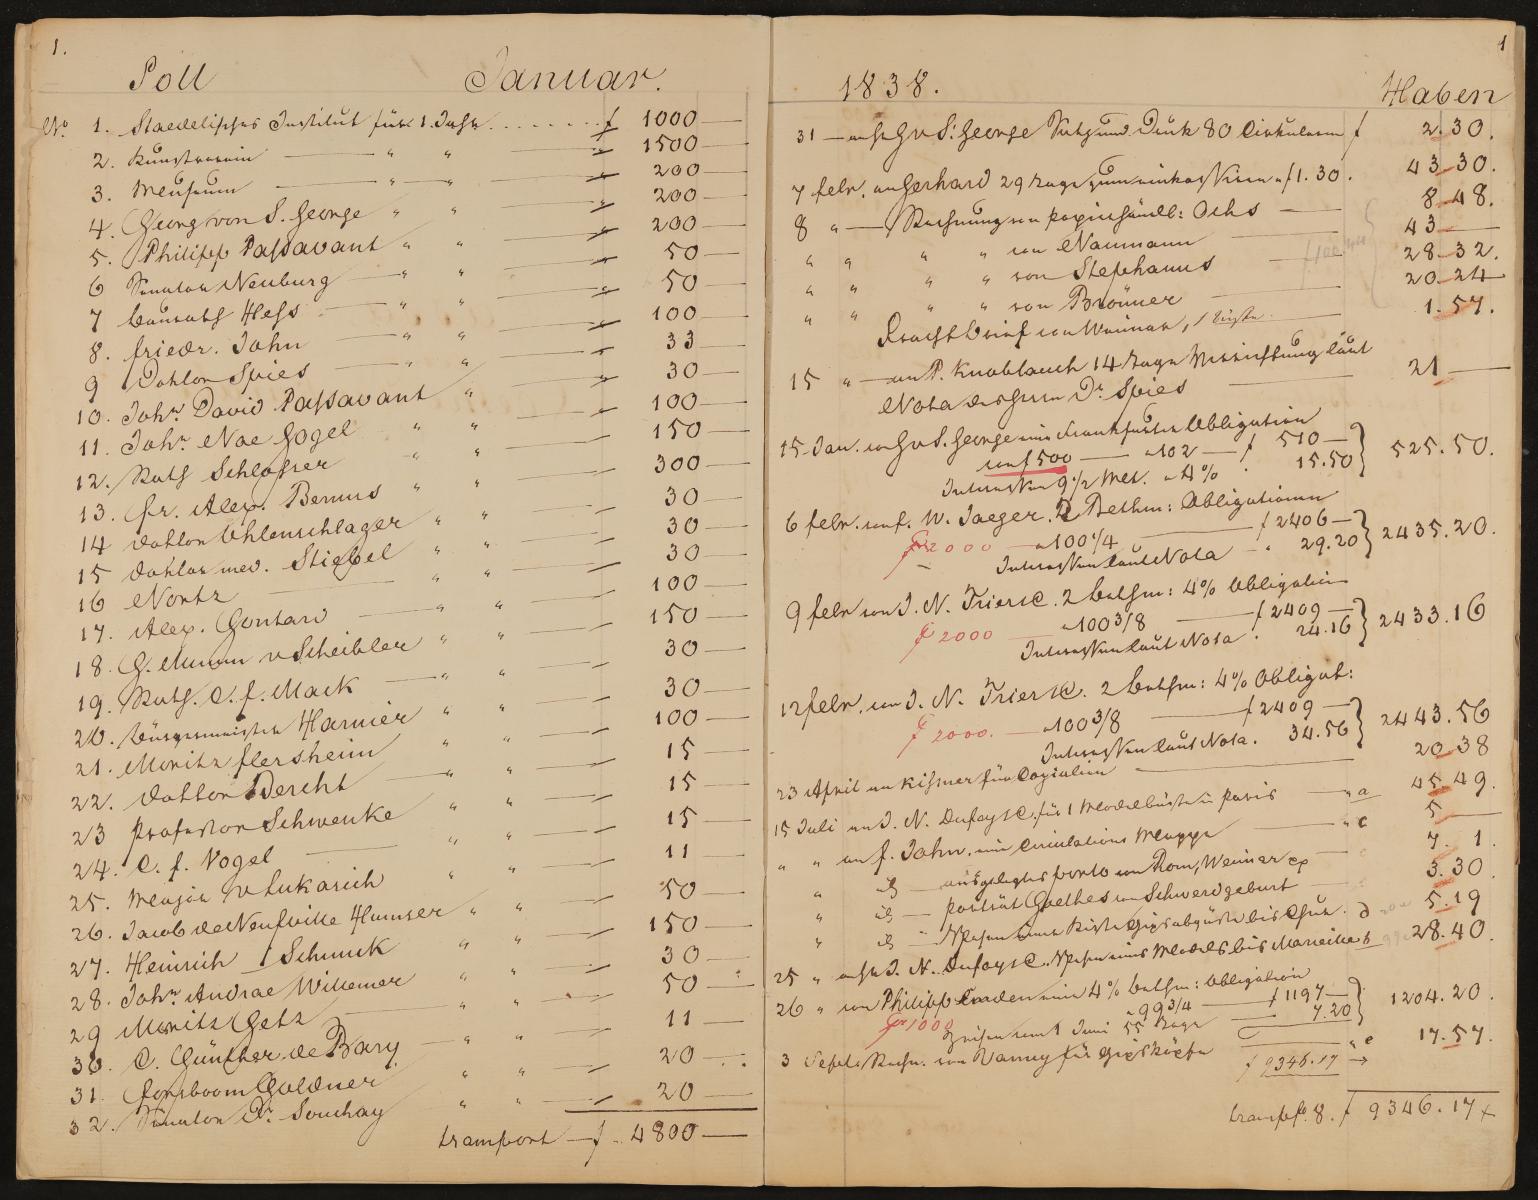 1.
Soll Januar.
No. 1. Staedelisches Institut für 1. Jahr f 1000 —
2. Kunstverein " " " 1500 —
3. Meuseum " " " 200 —
4. Georg von S. George " " " 200 —
5. Philipp Passavant " " " 200 —
6 Senator Neuburg " " " 50 —
7 Baurath Hess " " " 50 —
8. Friedr. John " " " 100 —
9 Doktor Spies " " " 33 —
10. Johs. David Passavant " " 30 —
11. Johs. Noe Gogel " " " 100 —
12. Rath Schlosser " " " 150 —
13. Fr. Alex. Bernus " " 300 —
14 Doktor Ohlenschlager " " 30 —
15 Doktor med. Stiebel " " 30 —
16 Nortz " " 30 —
17. Alex. Gontard " " 100 —
18. G. Mumm v Scheibler " " 150 —
19. Rath. C. f. Mack " " 30 —
20. Bürgermeister Harnier " " 30 —
21. Moritz flersheim " " 100 —
22. Doktor Dercht " " 15 —
23 Professor Schwenke " " 15 —
24. C. f. Vogel " " 15 —
25. Major v Lukasich " " 11 —
26. Jacob de Neufville Humser " " 50 —
27. Heinrich Schmuck " " 150 —
28. Johs. Andrae Willemer " " 30 —
29 Moritz Getz " " 50 —
30. C. Günther de Bary " " 11 —
31. Forsboom Goldner " " 20 —
32. Senator Dr. Souchay " " 20 —
transport — f 4800 —
1
1838. Haben
31 — an H. G v S. George Satz und Druck 80 Cirkularen f 2.30.
7 febr. an Gerhard 29 Tage zum einkassiren a f 1.30. 43.30.
8 " — Rechnung von Papierhändl: Ochs — 8.48.
" " " " von Naumann 43 —
" " " " von Stephanus — 28.32.
" " " " von Brönner — 20.24
Frachtbrief von Weimar, 1 Kiste. 1.57.
15 " — an P. Knoblauch 14 Tage Messinstung laut
Nota des Herrn Dr. Spies — 21 —
15 Jan. von G v S. George eine Frankfurter Obligation
von f 500 — a 102 — f 510 —
Interessen 9 1/2 Mt. a 4% " 15.50 525.50.
6 febr. von f. W. Jaeger. 2 Bethm: Obligationen
f 2000 — a 100 1/4 — f 2406 —
Interessen laut Nota — " 29.20 2435.20.
9 febr von J. N. Trier & C. 2 bethm: 4% Obligation
f 2000 — a 100 3/8 — f 2409 —
Interessen laut Nota " 24.16 2433.16
12 febr. von J. N. Trier & C. 2 bethm: 4% Obligat:
f 2000. — a 100 3/8 — f 2409 —
Interessen laut Nota. 34.56 2443.56
23 April an Kissner für Copialien — 20.38
15 Juli an J. N. Dufay & C. für 1 Modelbüste in Paris — " a 45.49.
" " an f. John. eine Circulations Mappe — " c 5 —
" id — ausgelegtes porto von Rom, Weimar cp 7. 1.
" id — porträt Goethes von Schwerdgeburt — 3.30.
" id — Spesen einer Kiste Gipsabgüsse bis Chur. d 5.19
25 " an H. J. N. Dufay & C. Spesen eines Models bis Marseille b 28.40.
26 " von Philipp Emden eine 4% bethm: Obligation
f 1000 a 99 3/4 — f 1197 —
Zinsen vom 1 Juni 55 Tage — 7.20 1204.20.
3 Septbr Rechn. von Vanny für Gipsköpfe " e 17.57.
f 9346.17
transp fo. 8. f 9346.17 x